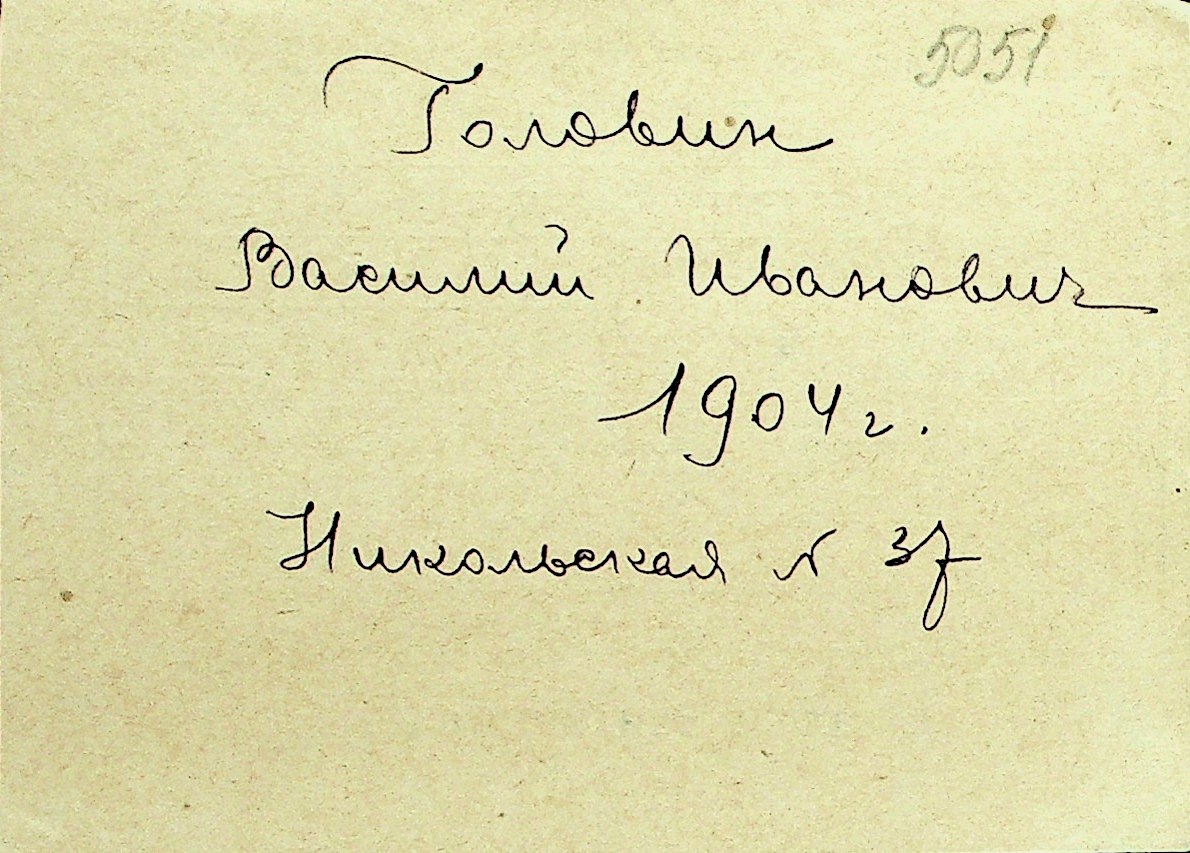 5051
Головин
Василий Иванович
1904 г.
Никольская N 37